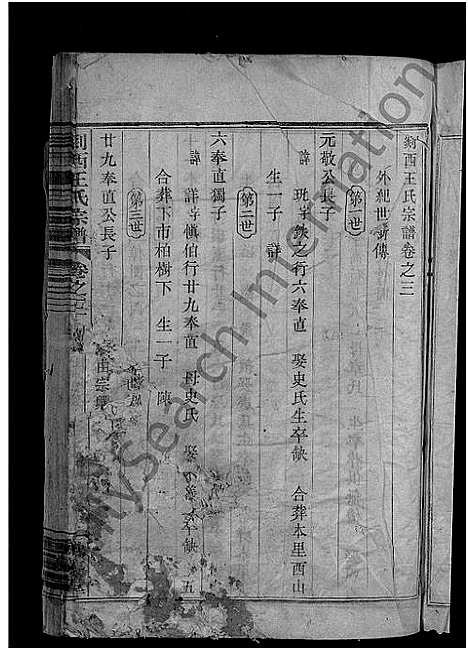 剡西王氏宗譜卷之三
外紀世系傳
第一世
元敬公長子
諱 珖字鉄之行六奉直 娶史氏生卒缺 合葬本里西山
生一子 詳
第二世
六奉直獨子
諱 詳字慎伯行廿九奉直 母史氏 娶 氏 卒缺 五
合葬下市柏樹下 生一子 陳
第三世
廿九奉直公長子
由宗
剡西王氏宗譜 卷之三
MySearch International